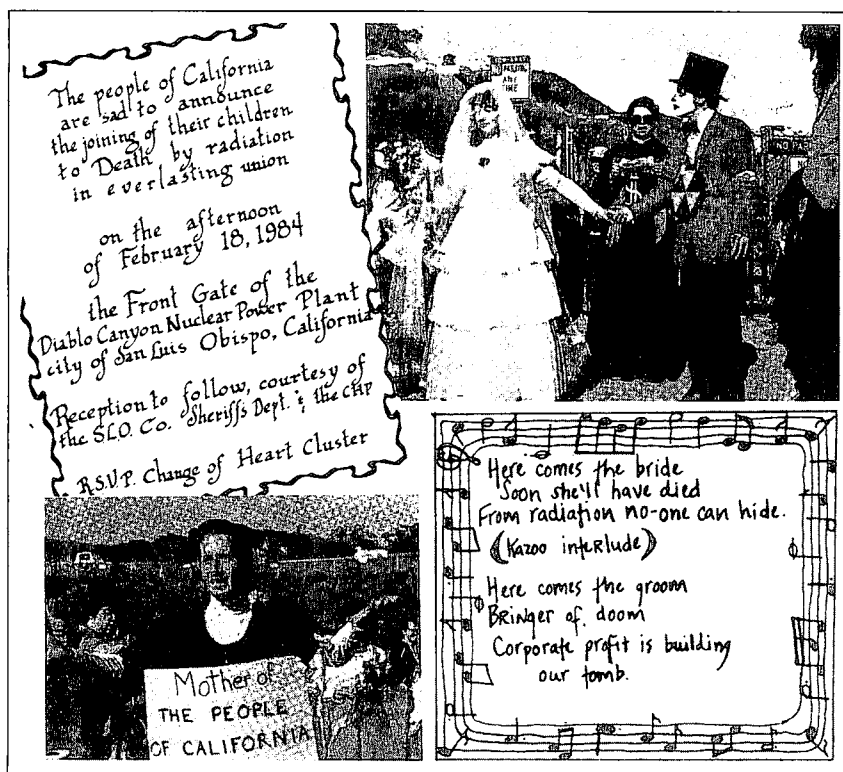 The people of California
are sad to announce
the joining of their children
to Death by radiation
in everlasting union
on the afternoon
of February 18, 1984
the Front Gate of the
Diablo Canyon Nuclear Power Plant
city of San Luis Obispo, California
Reception to follow, courtesy of
the S.L.O. Co. Sheriff's Dept. & the CHP
R.S.V.P. Change of Heart Cluster
ANY
TIME
Here comes the bride
Soon she'll have died
From radiation no-one can hide.
(Kazoo interlude)
Here comes the groom
Bringer of doom
Corporate profit is building
our tomb.
Mother of
THE PEOPLE
OF CALIFORNIA